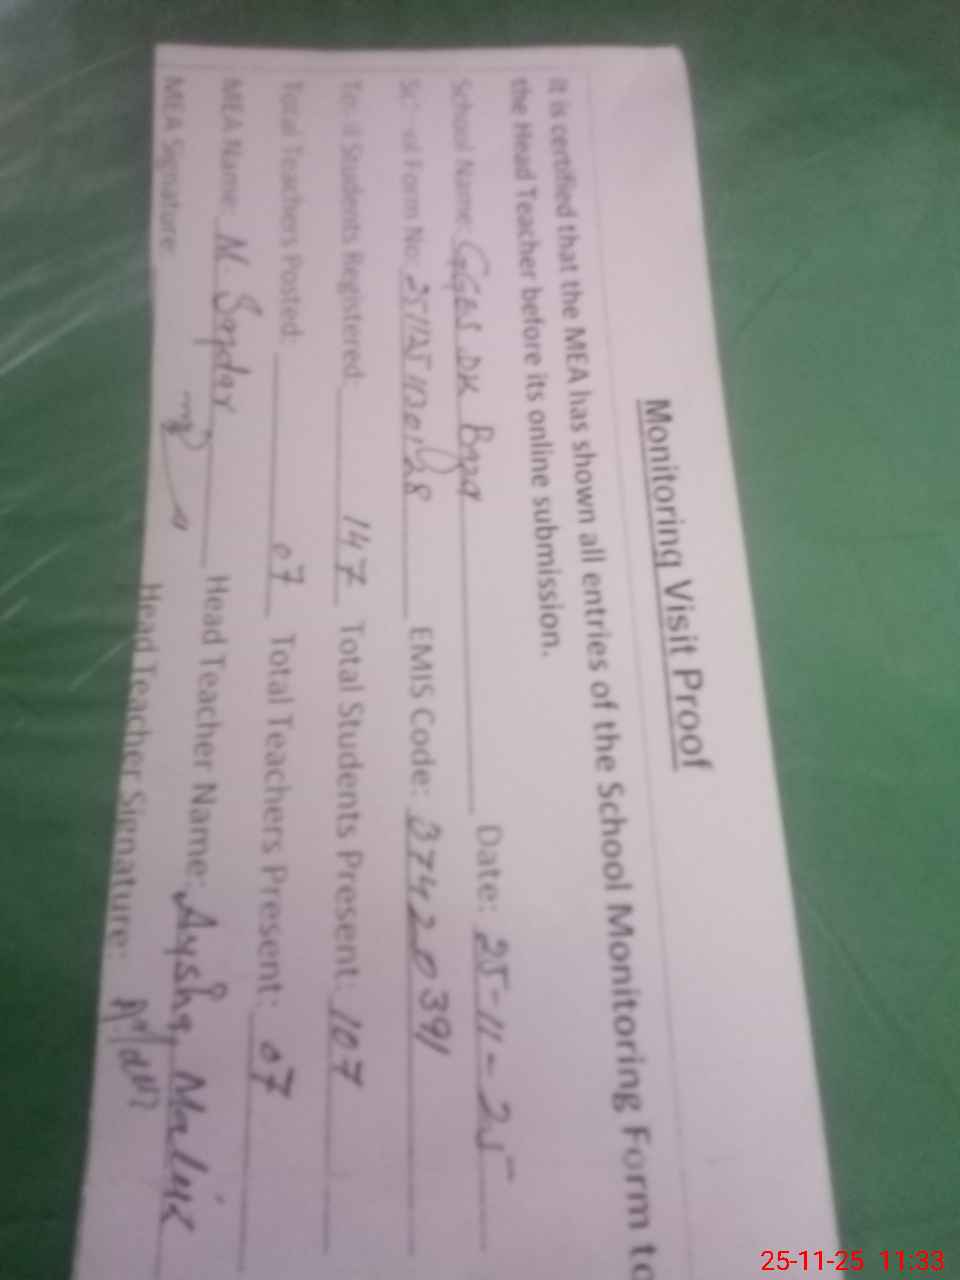 Monitoring Visit Proof
It is certified that the MEA has shown all entries of the School Monitoring Form to
the Head Teacher before its online submission.
School Name: GGES DK Date: 25-11-25
Form No: EMIS Code: 37420391
Students Registered: 147 Total Students Present: 107
Total Teachers Posted: 07 Total Teachers Present: 07
MEA Name: M. Head Teacher Name: Aysha Malik
MEA Signature: Head Teacher Signature:
25-11-25 11:33